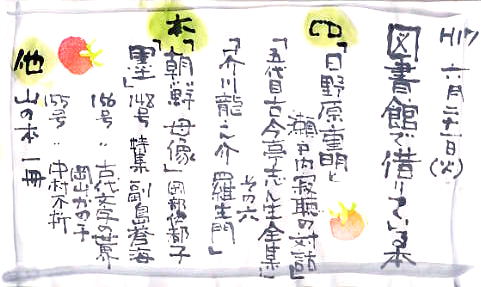 H17 六月二十一日(火)
図書館で借りている本
CD「日野原重明と
瀬戸内寂聴の対話」
「五代目古今亭志ん生全集」
その六
「芥川龍之介 羅生門」
本「朝鮮 母像」岡部伊都子
「墨」148号 特集 副島蒼海
166号 〃 古代文字の世界
岡山かの子
155号 〃 中村不折
他 山の本一冊